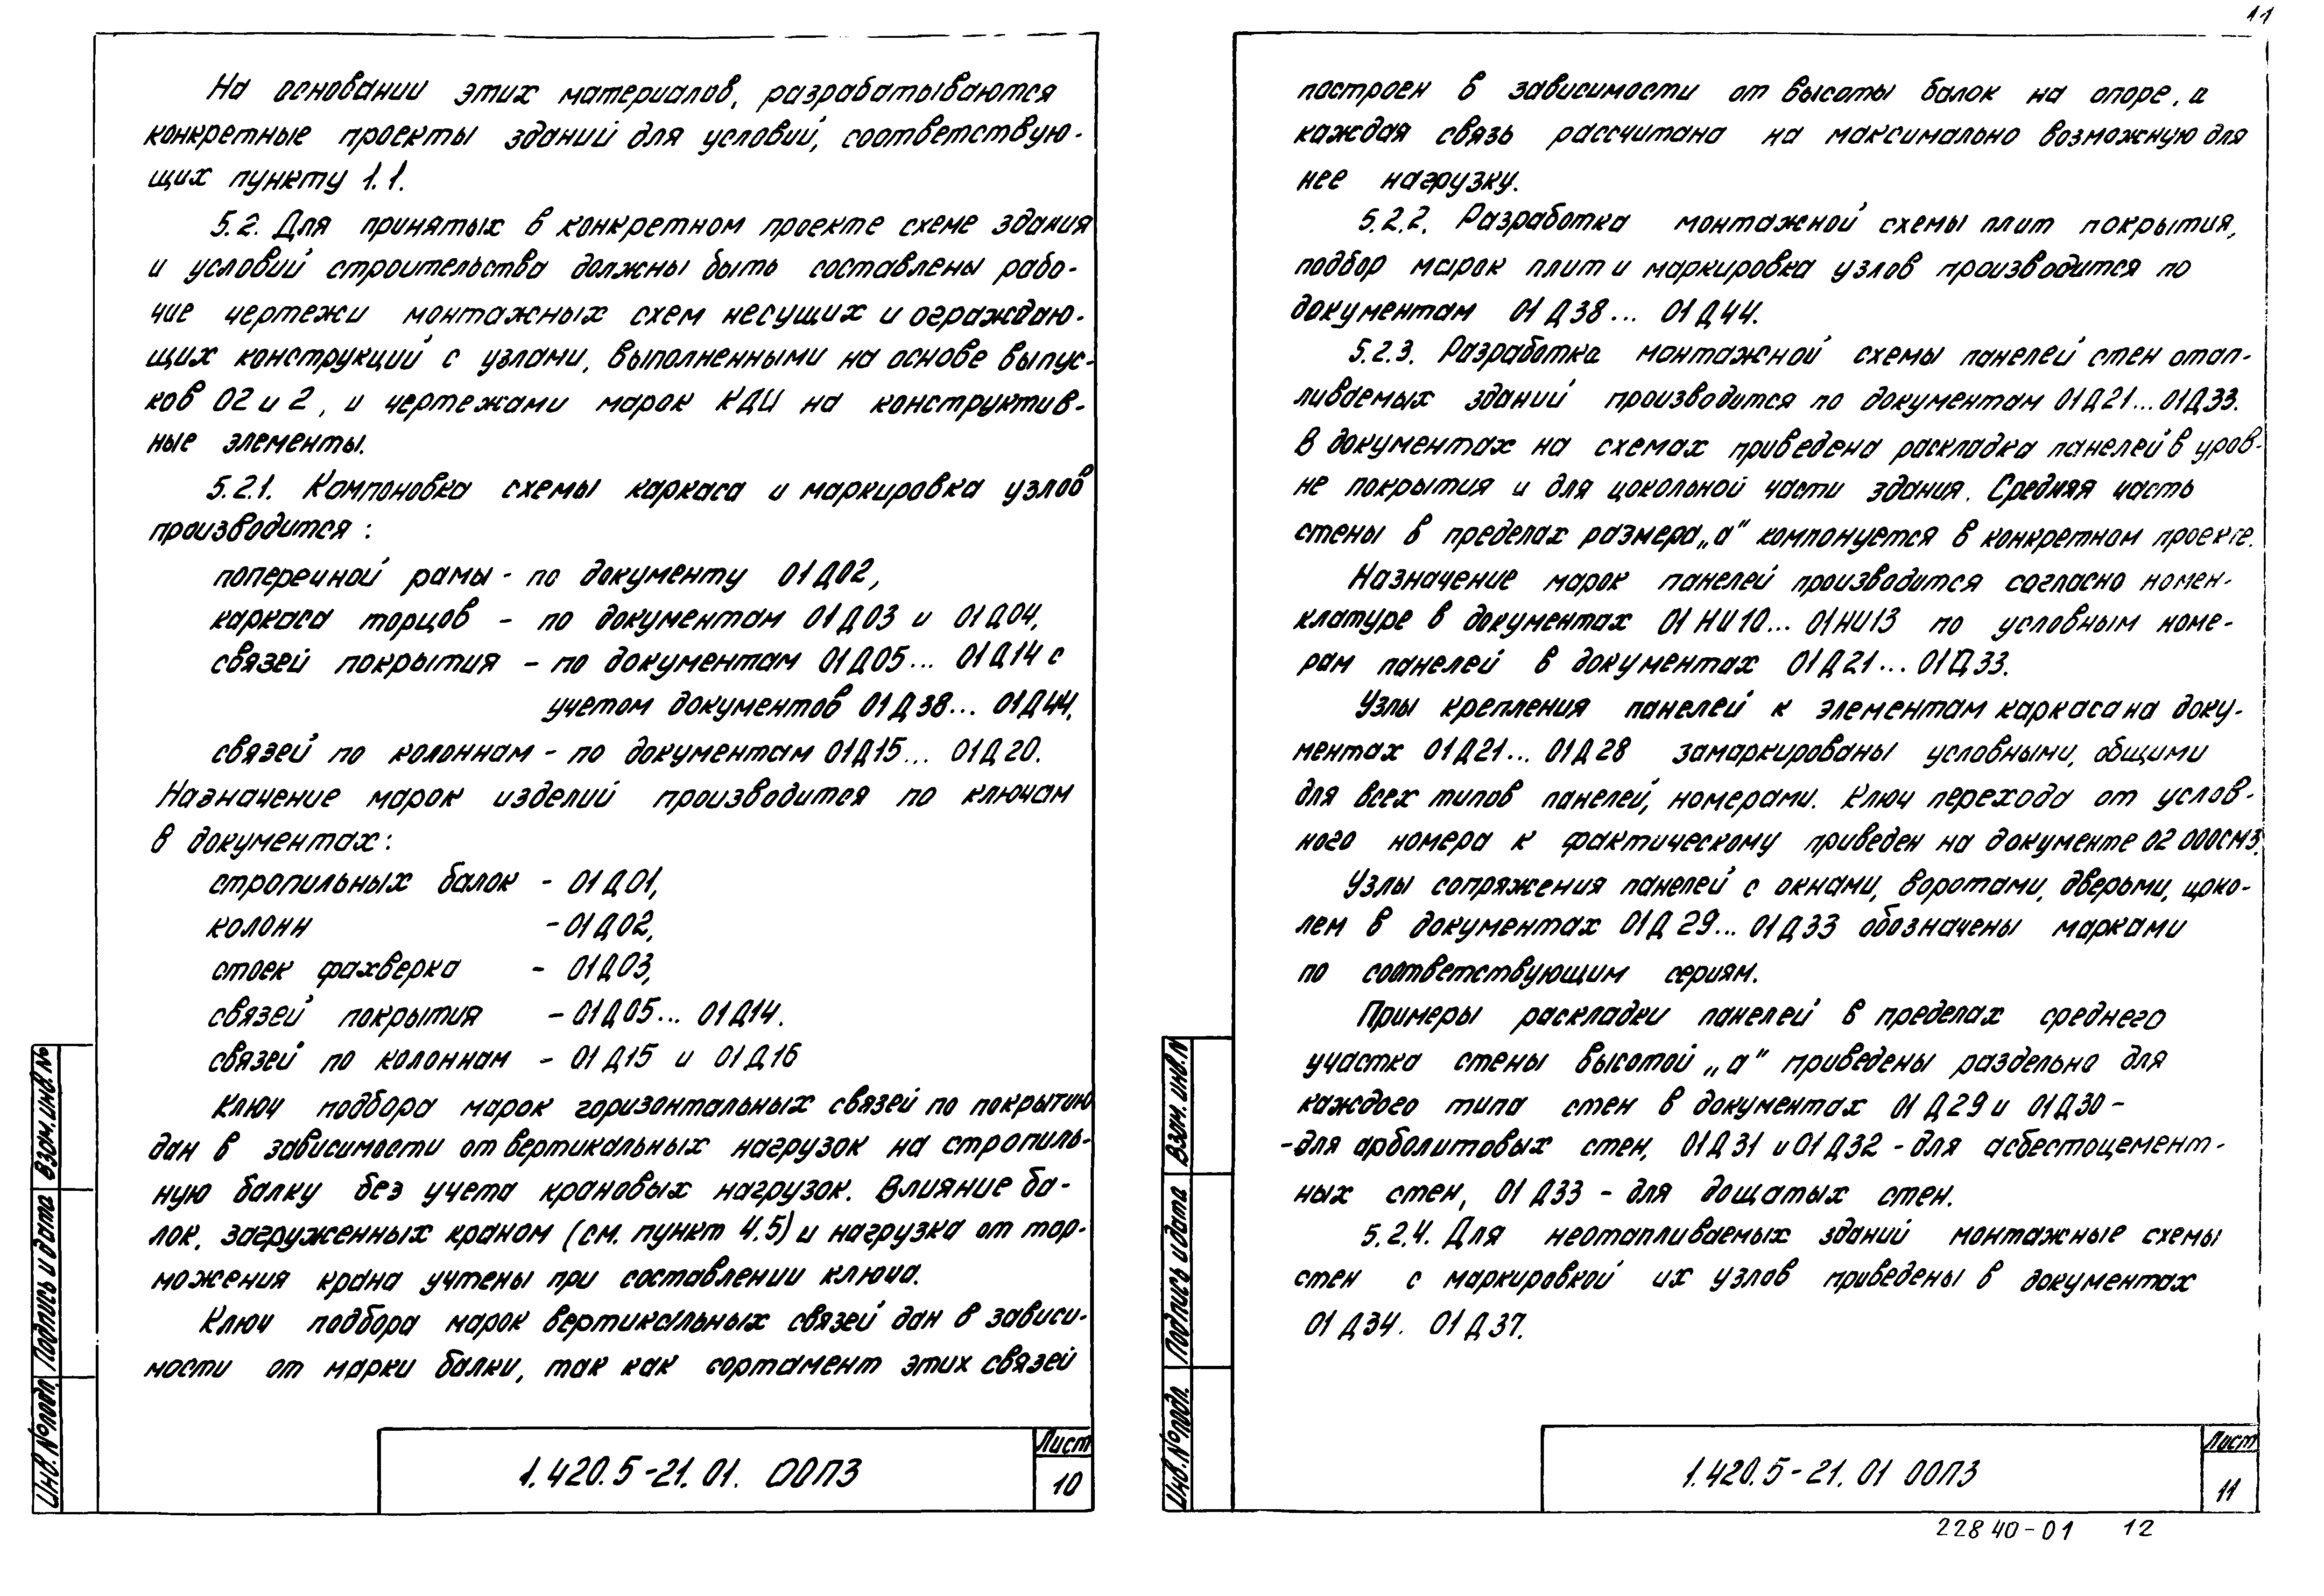 На основании этих материалов, разрабатываются
конкретные проекты зданий для условий, соответствую-
щих пункту 1.1.
5.2. Для принятых в конкретном проекте схеме здания
и условий строительства должны быть составлены рабо-
чие чертежи монтажных схем несущих и ограждаю-
щих конструкций с узлами, выполненными на основе выпус-
ков 02 и 2, и чертежами марок КДИ на конструктив-
ные элементы.
5.2.1. Компоновка схемы каркаса и маркировка узлов
производится:
поперечной рамы - по документу 01Д02,
каркаса торцов - по документам 01Д03 и 01Д04,
связей покрытия - по документам 01Д05... 01Д14 с
учетом документов 01Д38... 01Д44,
связей по колоннам - по документам 01Д15... 01Д20.
Назначение марок изделий производится по ключам
в документах:
стропильных балок - 01Д01,
колонн - 01Д02,
стоек фахверка - 01Д03,
связей покрытия - 01Д05... 01Д14.
связей по колоннам - 01Д15 и 01Д16
Ключ подбора марок горизонтальных связей по покрытию
дан в зависимости от вертикальных нагрузок на стропиль-
ную балку без учета крановых нагрузок. Влияние ба-
лок, загруженных краном (см. пункт 4.5) и нагрузка от тор-
можения крана учтены при составлении ключа.
Ключ подбора марок вертикальных связей дан в зависи-
мости от марки балки, так как сортамент этих связей
Инв.№подл. Подпись и дата Взам.инв.№
1.420.5-21.01. 00ПЗ
Лист
10
11
построен в зависимости от высоты балок на опоре, а
каждая связь рассчитана на максимально возможную для
нее нагрузку.
5.2.2. Разработка монтажной схемы плит покрытия,
подбор марок плит и маркировка узлов производится по
документам 01Д38... 01Д44.
5.2.3. Разработка монтажной схемы панелей стен отап-
ливаемых зданий производится по документам 01Д21...01Д33.
В документах на схемах приведена раскладка панелей в уров-
не покрытия и для цокольной части здания. Средняя часть
стены в пределах размера „а" компонуется в конкретном проекте.
Назначение марок панелей производится согласно номен-
клатуре в документах 01НИ10... 01НИ13 по условным номе-
рам панелей в документах 01Д21... 01Д33.
Узлы крепления панелей к элементам каркаса на доку-
ментах 01Д21... 01Д28 замаркированы условными, общими
для всех типов панелей, номерами. Ключ перехода от услов-
ного номера к фактическому приведен на документе 02 000СМ3.
Узлы сопряжения панелей с окнами, воротами, дверьми, цоко-
лем в документах 01Д29... 01Д33 обозначены марками
по соответствующим сериям.
Примеры раскладки панелей в пределах среднего
участка стены высотой „а" приведены раздельно для
каждого типа стен в документах 01Д29 и 01Д30 -
-для арболитовых стен, 01Д31 и 01Д32 - для асбестоцемент-
ных стен, 01Д33 - для дощатых стен.
5.2.4. Для неотапливаемых зданий монтажные схемы
стен с маркировкой их узлов приведены в документах
01Д34. 01Д37.
Инв.№подл. Подпись и дата Взам.инв.№
1.420.5-21.01 00ПЗ
Лист
11
22840-01 12